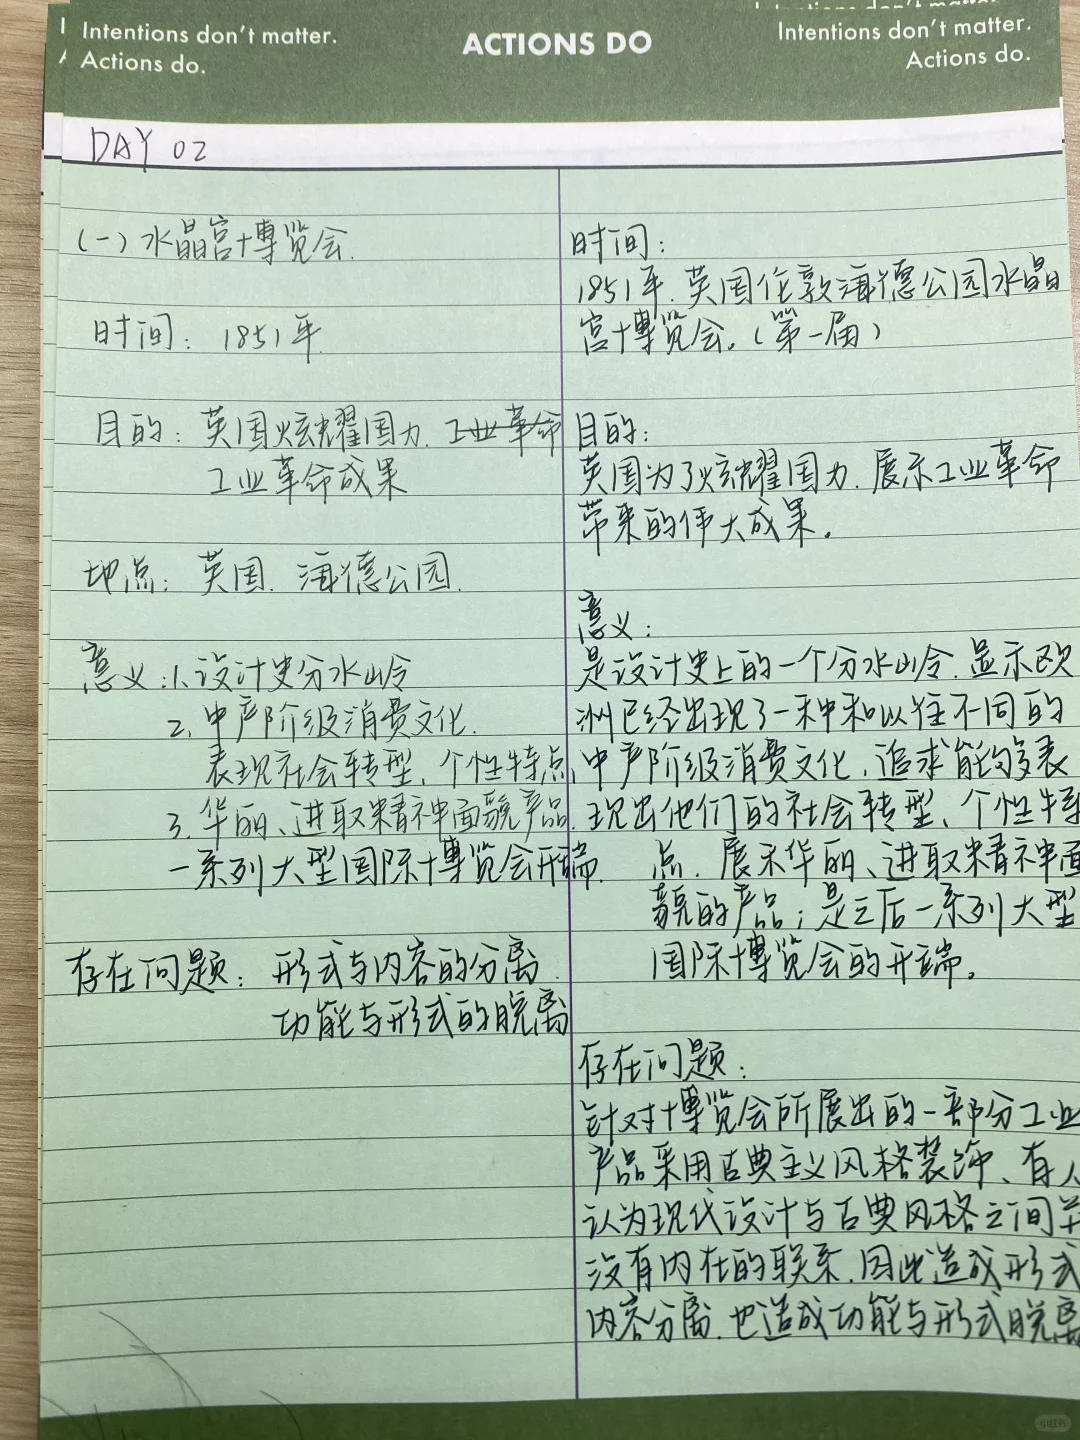 Intentions don't matter.
Actions do.
ACTIONS DO
Intentions don't matter.
Actions do.
DAY 02
(一)水晶宫博览会.
时间: 1851年.
目的: 英国炫耀国力. 工业革命
工业革命成果
地点: 英国. 海德公园.
意义:1.设计史分水岭
2.中产阶级消费文化.
表现社会转型、个性特点、
3.华丽、进取精神面貌产品.
一系列大型国际博览会开端.
存在问题: 形式与内容的分离.
功能与形式的脱离
时间:
1851年.英国伦敦海德公园水晶
宫博览会。(第一届)
目的:
英国为了炫耀国力.展示工业革命
带来的伟大成果。
意义:
是设计史上的一个分水岭.显示欧
洲已经出现了一种和以往不同的
中产阶级消费文化,追求能够表
现出他们的社会转型、个性特
点.展示华丽、进取精神面
貌的产品;是之后一系列大型
国际博览会的开端。
存在问题:
针对博览会所展出的一部分工业
产品采用古典主义风格装饰、有人
认为现代设计与古典风格之间并
没有内在的联系.因此造成形式
内容分离.也造成功能与形式脱离
小红书